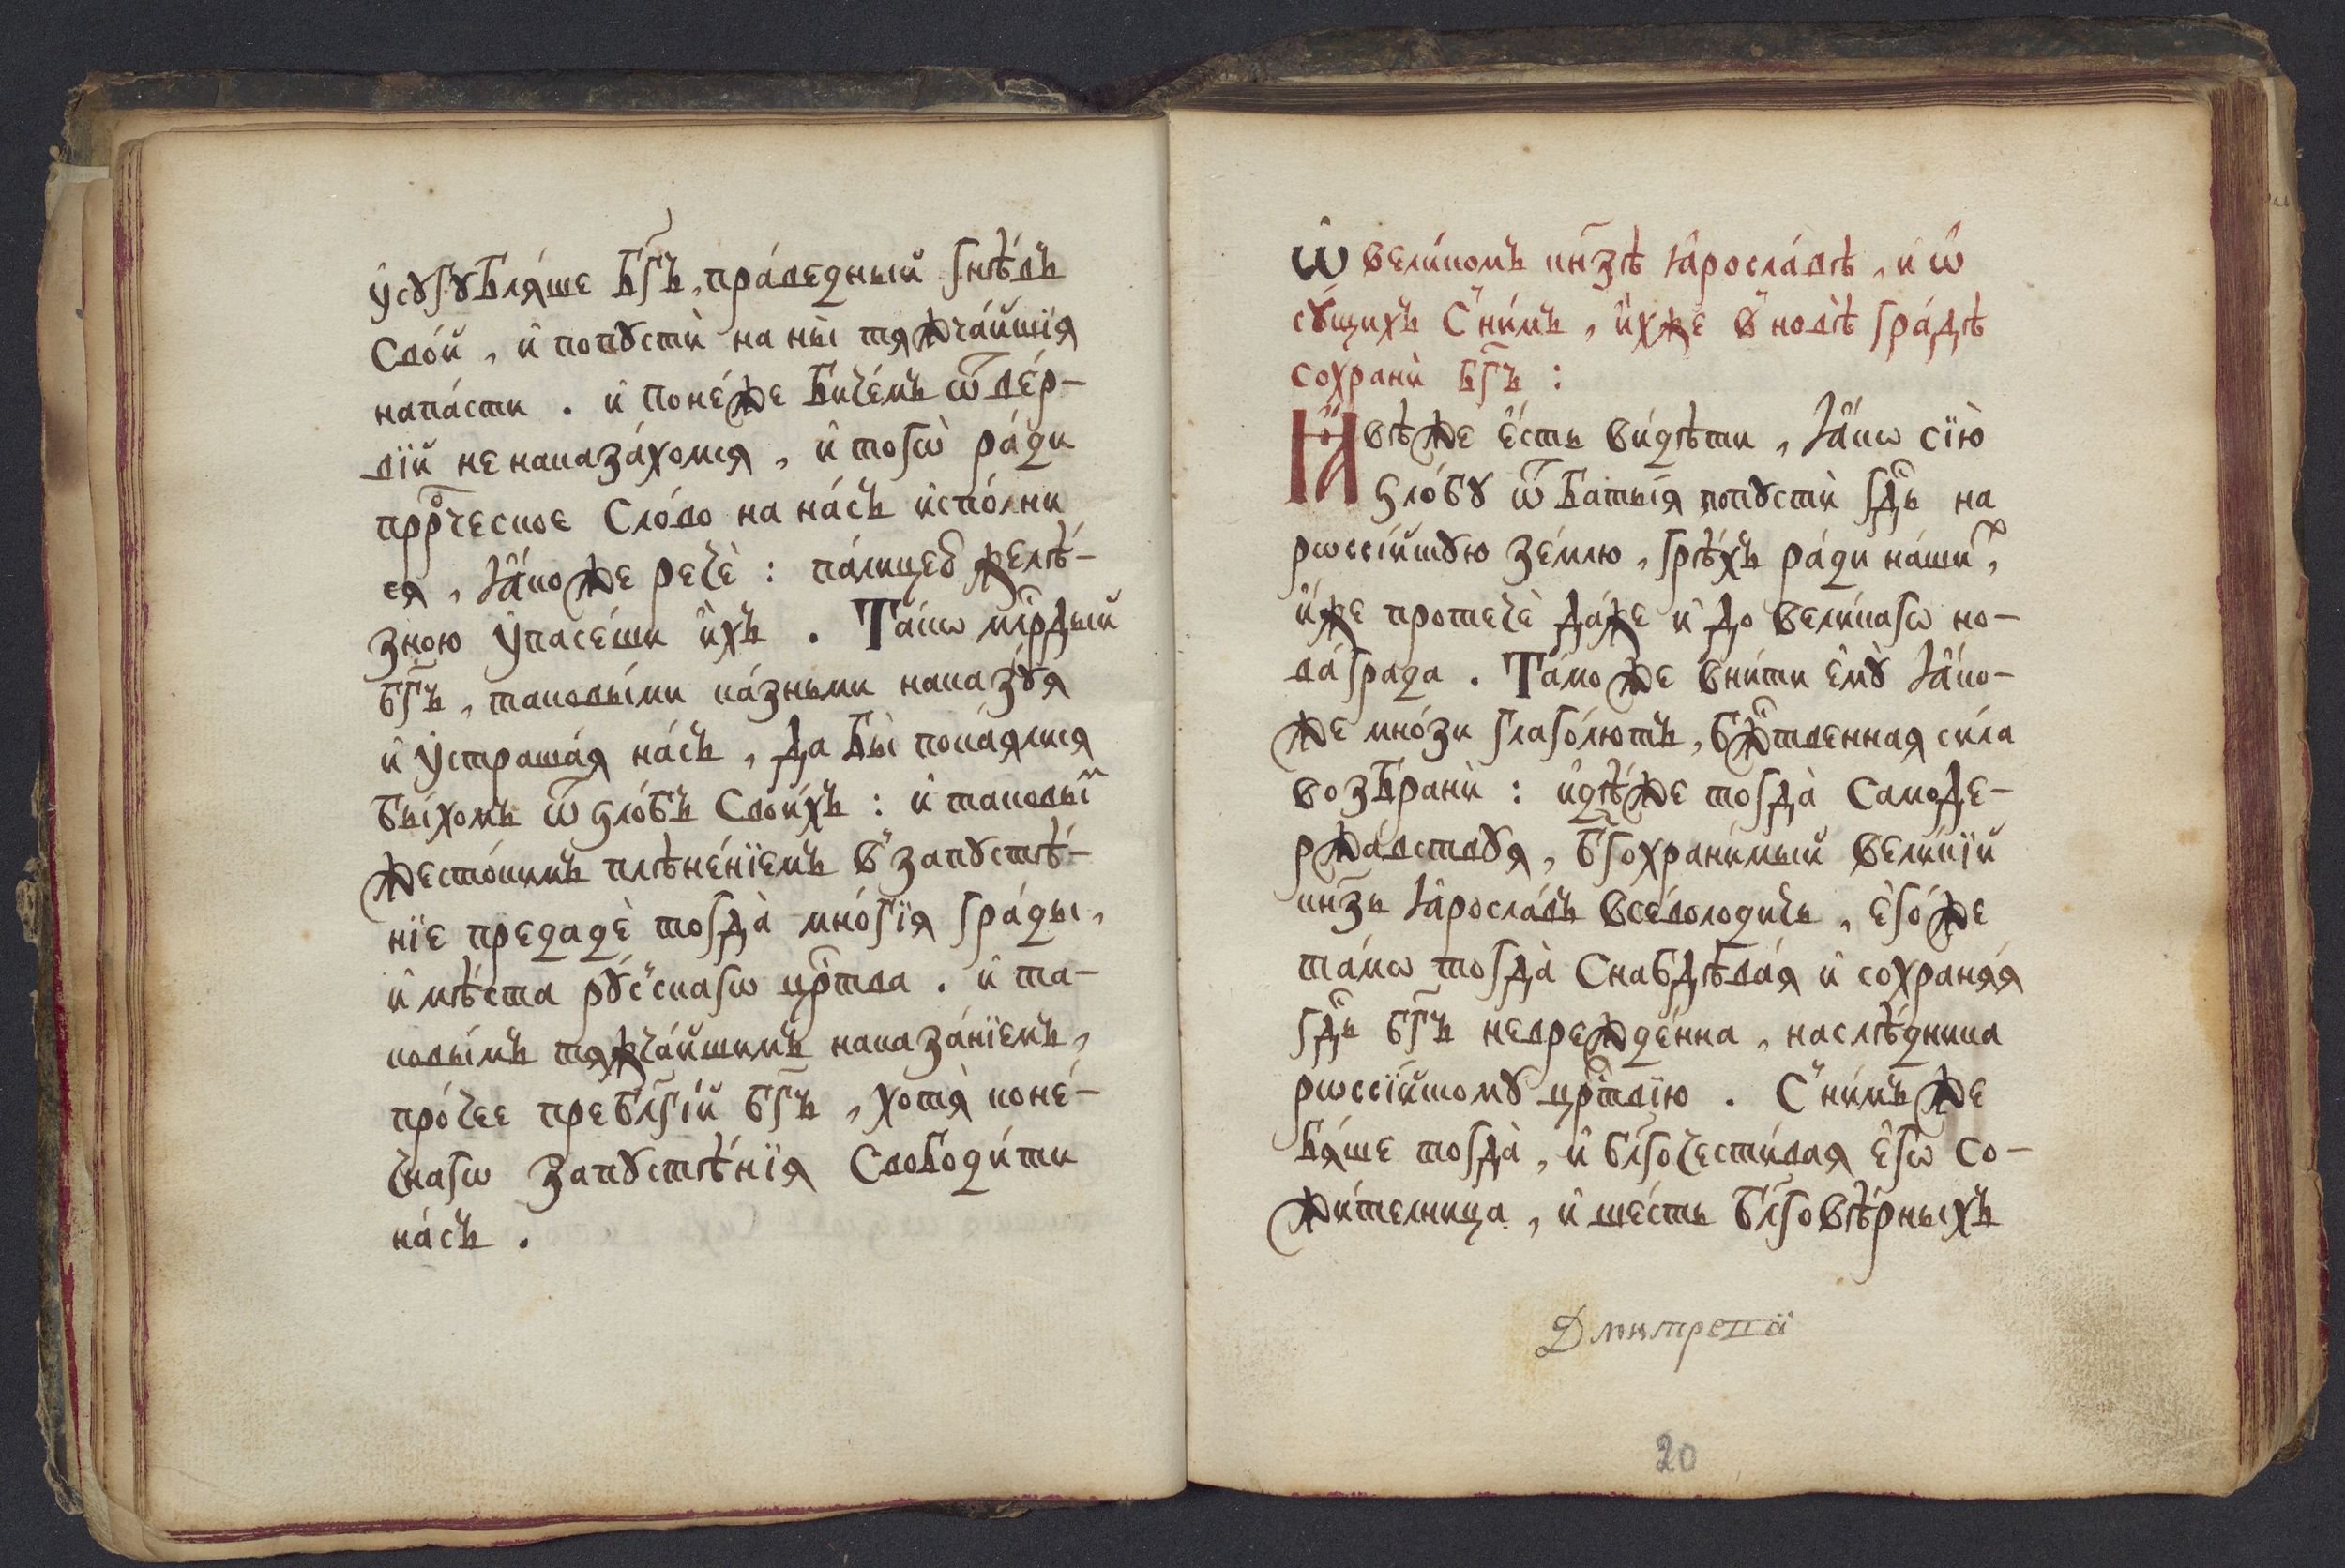 ᲂу҆сꙋгꙋблѧ́ше бг҃ъ, пра́ведный гнѣ́въ
сво́й, и҆ попꙋстѝ на ны̀ тѧжча́йшїѧ
напа́сти. и҆ поне́же биче́мъ ѿ ве́р-
вїй не наказа́хомсѧ, и҆ тогѡ̀ ра́ди
прⷪ҇ческое сло́во на на́съ и҆спо́лни
сѧ, ꙗ҆́коже речѐ: па́лицею желѣ́-
зною ᲂу҆пасе́ши и҆̀хъ. Та́кѡ млⷭ҇рдый
бг҃ъ, таковы́ми ка́зньми наказꙋ́ѧ
и҆ ᲂу҆страша́ѧ на́съ, да бы̀ пока́ѧлисѧ
бы́хомъ ѿ ѕло́бъ свои́хъ: и҆ таковыⷨ
жесто́кимъ плѣне́нїемъ в̾ запꙋстѣ́-
нїе предадѐ тогда̀ мнѡ́гїѧ гра́ды,
и҆ мѣ́ста рꙋ́с̾скагѡ црⷭ҇тва. и҆ та-
ковы́мъ тѧжча́йшимъ наказа́нїемъ,
про́чее преблг҃і́й бг҃ъ, хотѧ̀ коне́-
чнагѡ запꙋстѣ́нїѧ свободи́ти
на́съ.
Ѡ҆ вели́комъ кнѧ҃зѣ ꙗ҆росла́вѣ, и҆ ѡ҆
сꙋ́щихъ с̾ ни́мъ, и҆̀хже в̾ но́вѣ гра́дѣ
сохранѝ бг҃ъ:
И҆́вѣ же є҆́сть ви́дѣти, ꙗ҆́кѡ сїю̀
ѕло́бꙋ ѿ баты́ѧ попꙋстѝ гдⷭ҇ь на
рѡссі́йскꙋю зе́млю, грѣ́хъ ра́ди на́шиⷯ,
и҆́же протечѐ да́же и҆ до вели́кагѡ но-
ва́града. Та́мо же вни́ти є҆мꙋ̀ ꙗ҆́ко-
же мно́зи глаго́лютъ, бжⷭ҇твенная си́ла
возбранѝ: и҆дѣ́же тогда̀ самоде-
ржа́вствꙋѧ, бг҃охрани́мый вели́кїй
кнѧ҃зь ꙗ҆росла́въ все́володичь, є҆го́же
та́мѡ тогда̀ снабдѣва́ѧ и҆ сохранѧ́ѧ
гдⷭ҇ь бг҃ъ невреждéнна, наслѣ́дника
рѡссі́йскомꙋ црⷭ҇твїю. С̾ ни́мъ же
бѧ́ше тогда̀, и҆ блг҃очести́ваѧ є҆гѡ̀ со-
жи́телница, и҆ ше́сть блг҃овѣ́рныхъ
20